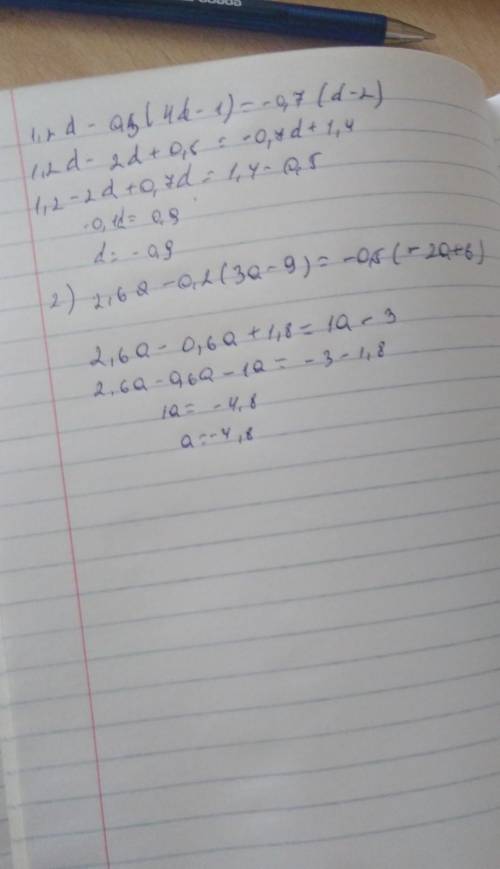 1,2d - 0,5(4d-1) = -0,7(d-2)
1,2d - 2d + 0,5 = -0,7d + 1,4
1,2 - 2d + 0,7d = 1,4 - 0,5
-0,1d = 0,9
d = -0,9
2) 2,6a - 0,2(3a-9) = -0,5(-2a+6)
2,6a - 0,6a + 1,8 = 1a - 3
2,6a - 0,6a - 1a = -3 - 1,8
1a = -4,8
a = -4,8